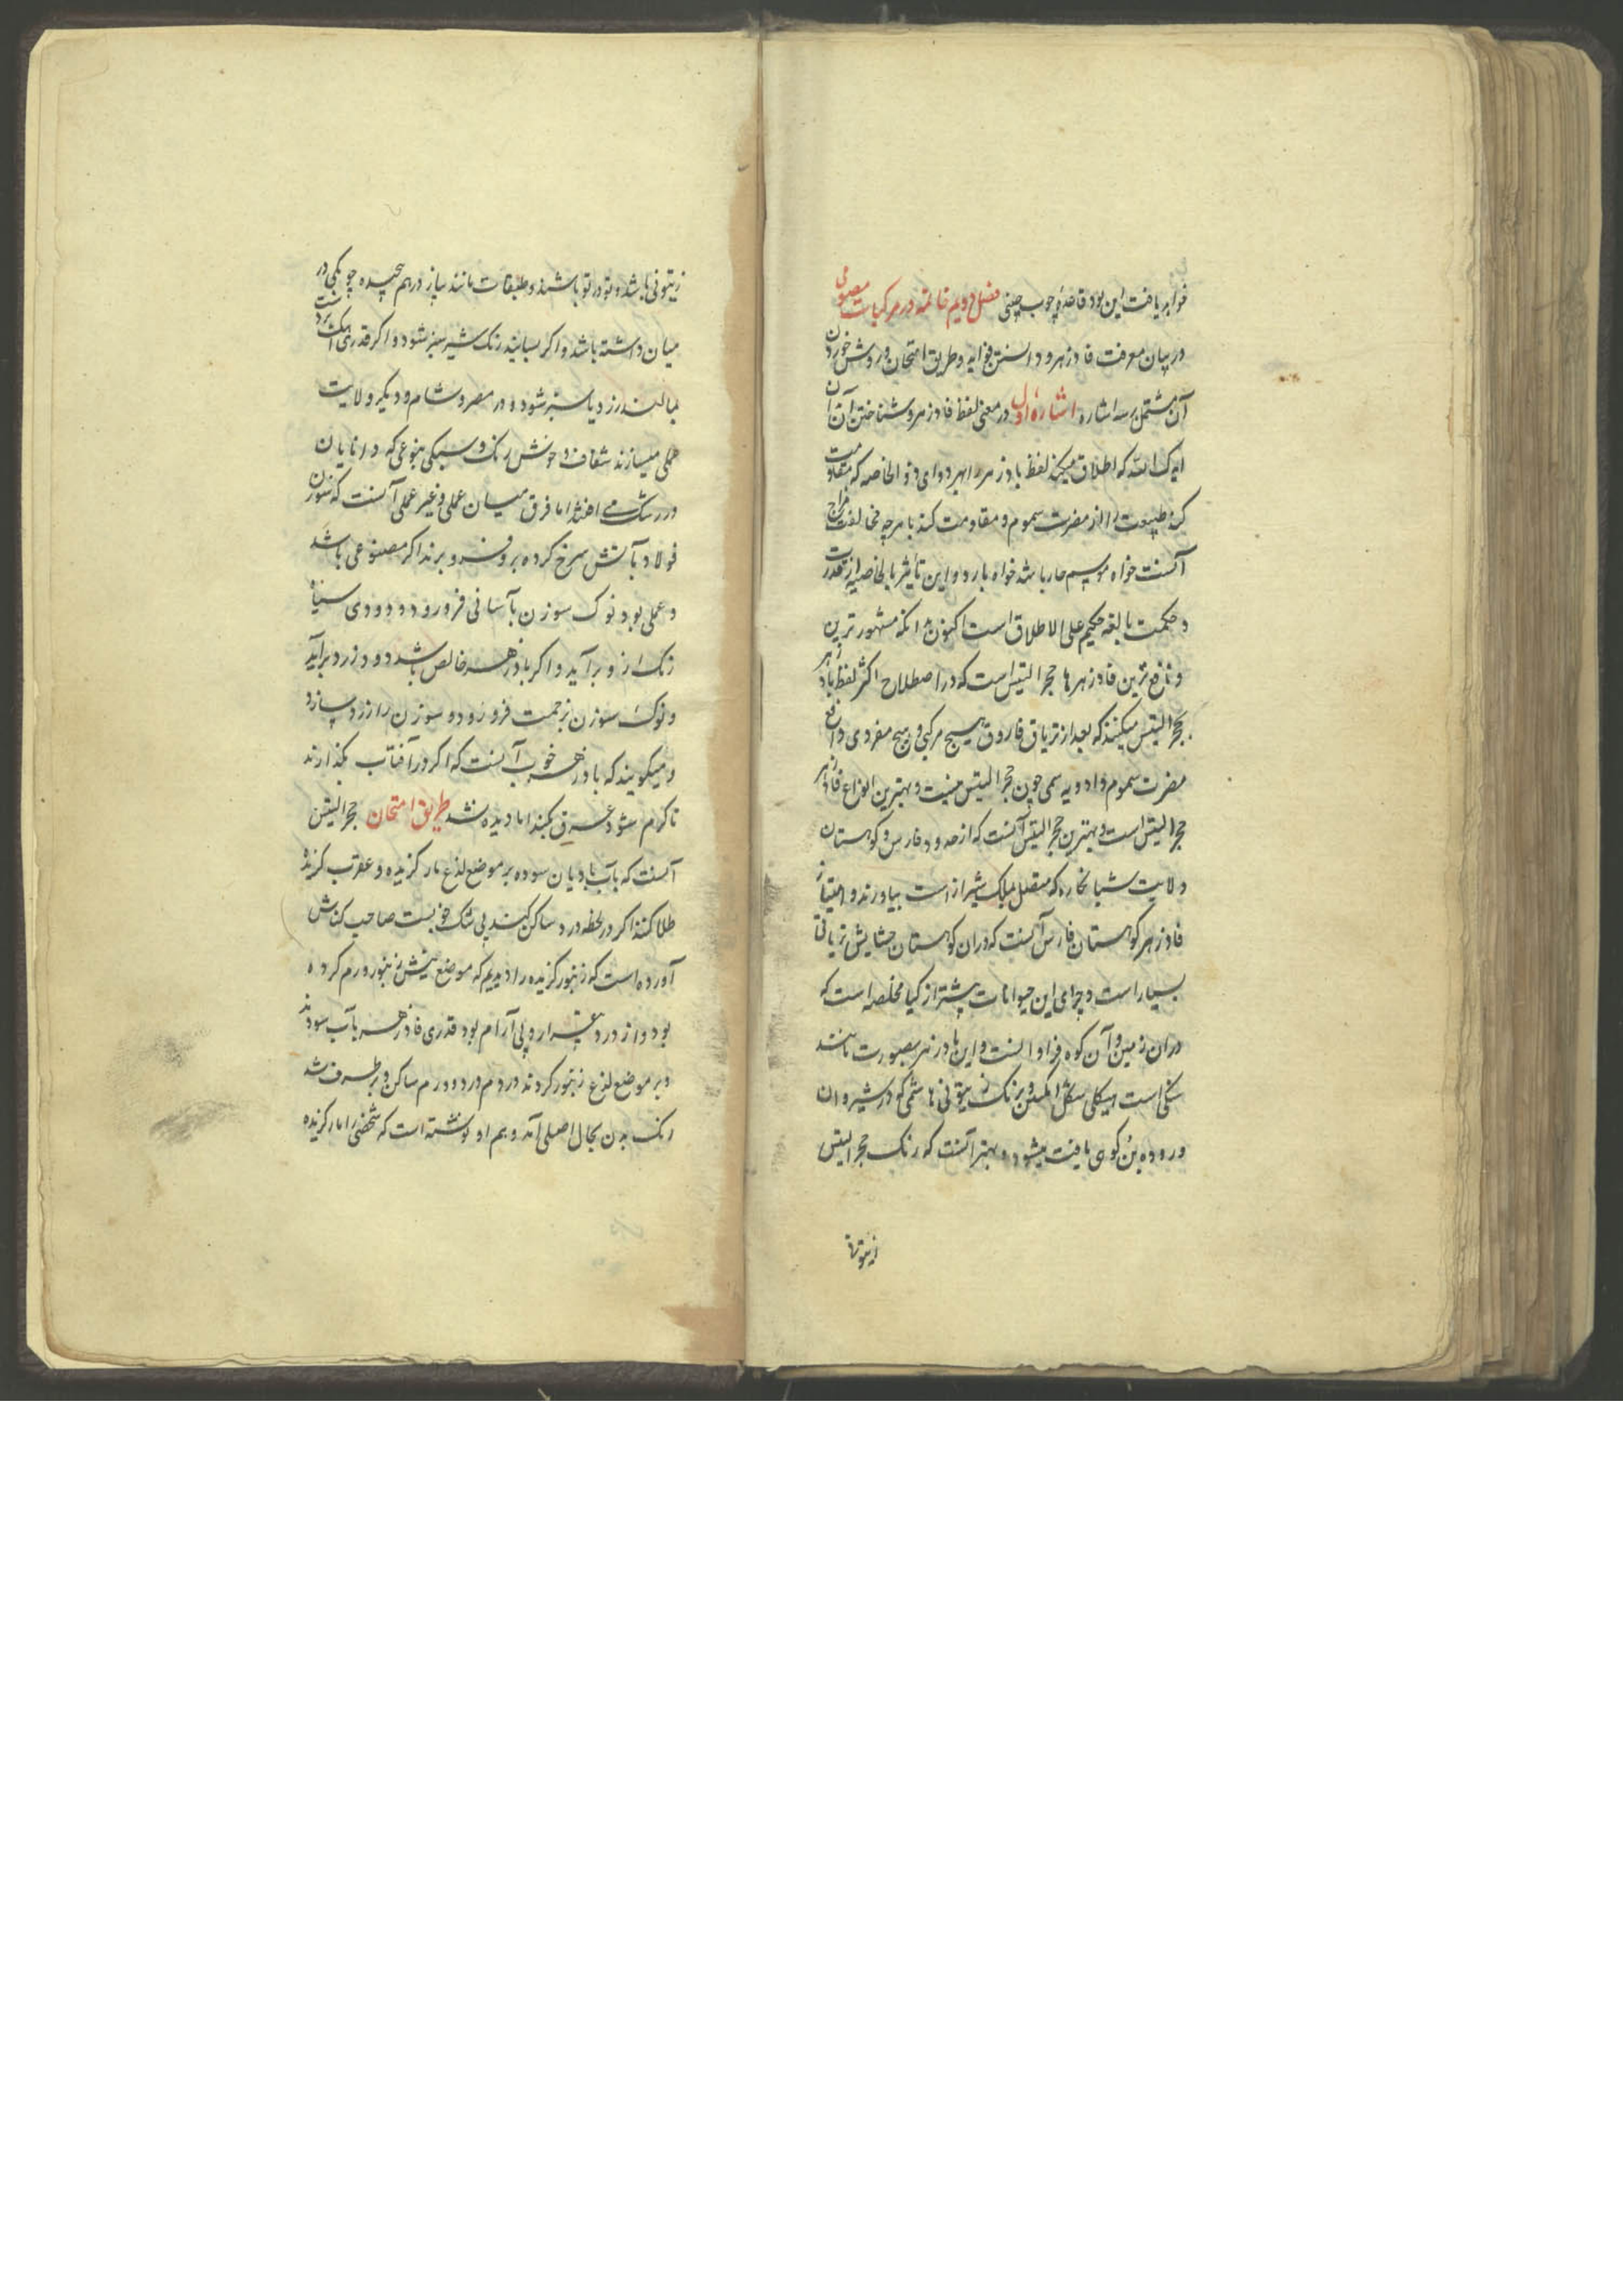 خواهد یافت این بود قاعدهٔ چوب چینی فصل دویم خاتمه در مرکبات معصومی
در بیان معرفت فادزهر و دانستن فواید و طریق امتحان و روش خوردن
آن مشتمل بر سه اشاره اشارهٔ اول در معنی لفظ فادزهر و شناختن آن
ایدک الله که اطلاق میکنند لفظ بادزهر را بهر دوای ذو الخاصه که مقاومت
کند طبیعت را از مضرت سموم و مقاومت کند با هرچه مخالف مزاج
آنست خواه سم حار باشد خواه بارد و این تأثیر بالخاصیه از قدرت
و حکمت بالغه حکیم علی الاطلاق است اکنون بدانکه مشهورترین
و نافع ترین فادزهرها حجر التیس است که در اصطلاح اکثر لفظ بادزهر
بحجر التیس میکنند که بعد از تریاق فاروق هیچ مرکبی و هیچ مفردی دافع
مضرت سموم و ادویه سمی چون حجر التیس نیست و بهترین انواع فادزهر
حجر التیس است و بهترین حجر التیس آنست که از حدود فارس و کوهستان
ولایت شبانکاره که متصل بملک شیراز است بیاورند و امتیاز
فادزهر کوهستان فارس آنست که دران کوهستان حشایش تریاقی
بسیار است و چرای این حیوانات بیشتر از کیا مخلصه است که
دران زمین و آن کوه فراوانست و این بادزهر بصورت مانند
سنکی است هیکلی شکل املس و برنک زیتونی باشد که در شیردان
و روده بز کوهی یافت میشود و بهتر آنست که رنک حجر التیس
زیتونی
زیتونی باشد و تو در تو باشد و طبقات مانند پیاز درهم پیچیده چوبکی در
میان داشته باشد و اکر بسایند رنک شیر سبز شود و اکر قدری آهک بر دست
بمالند زرد یا سبز شود و در مصر و شام و دیکر ولایت
عملی میسازند شفاف و خوش رنک و سبکی بنوعی که دانایان
در شک می افتند اما فرق میان عملی و غیر عملی آنست که سوزن
فولاد بآتش سرخ کرده برو فرو برند اکر مصنوعی باشد
و عملی بود نوک سوزن بآسانی فرو رود و دودی سیاه
رنک ازو برآید و اکر بادزهر خالص باشد دود زرد برآید
و نوک سوزن بزحمت فرو رود و سوزن را زرد سازد
و میکویند که بادزهر خوب آنست که اکر در آفتاب بکذارند
تا کرم شود عرق بکند اما دیده نشد طریق امتحان حجر التیس
آنست که بآب بادیان سوده بر موضع لذع مار کزیده و عقرب کزیده
طلا کنند اکر در لحظه درد ساکن کند بی شک خوبست صاحب کناش
آورده است که زنبور کزیده را دیدیم که موضع نیش زنبور ورم کرده
بود و از درد بیقرار و بی آرام بود قدری فادزهر بآب سودند
و بر موضع لذع زنبور کردند در دم درد و ورم ساکن و برطرف شد
رنک بدن بحال اصلی آمد و هم او نوشته است که شخصی را مار کزیده